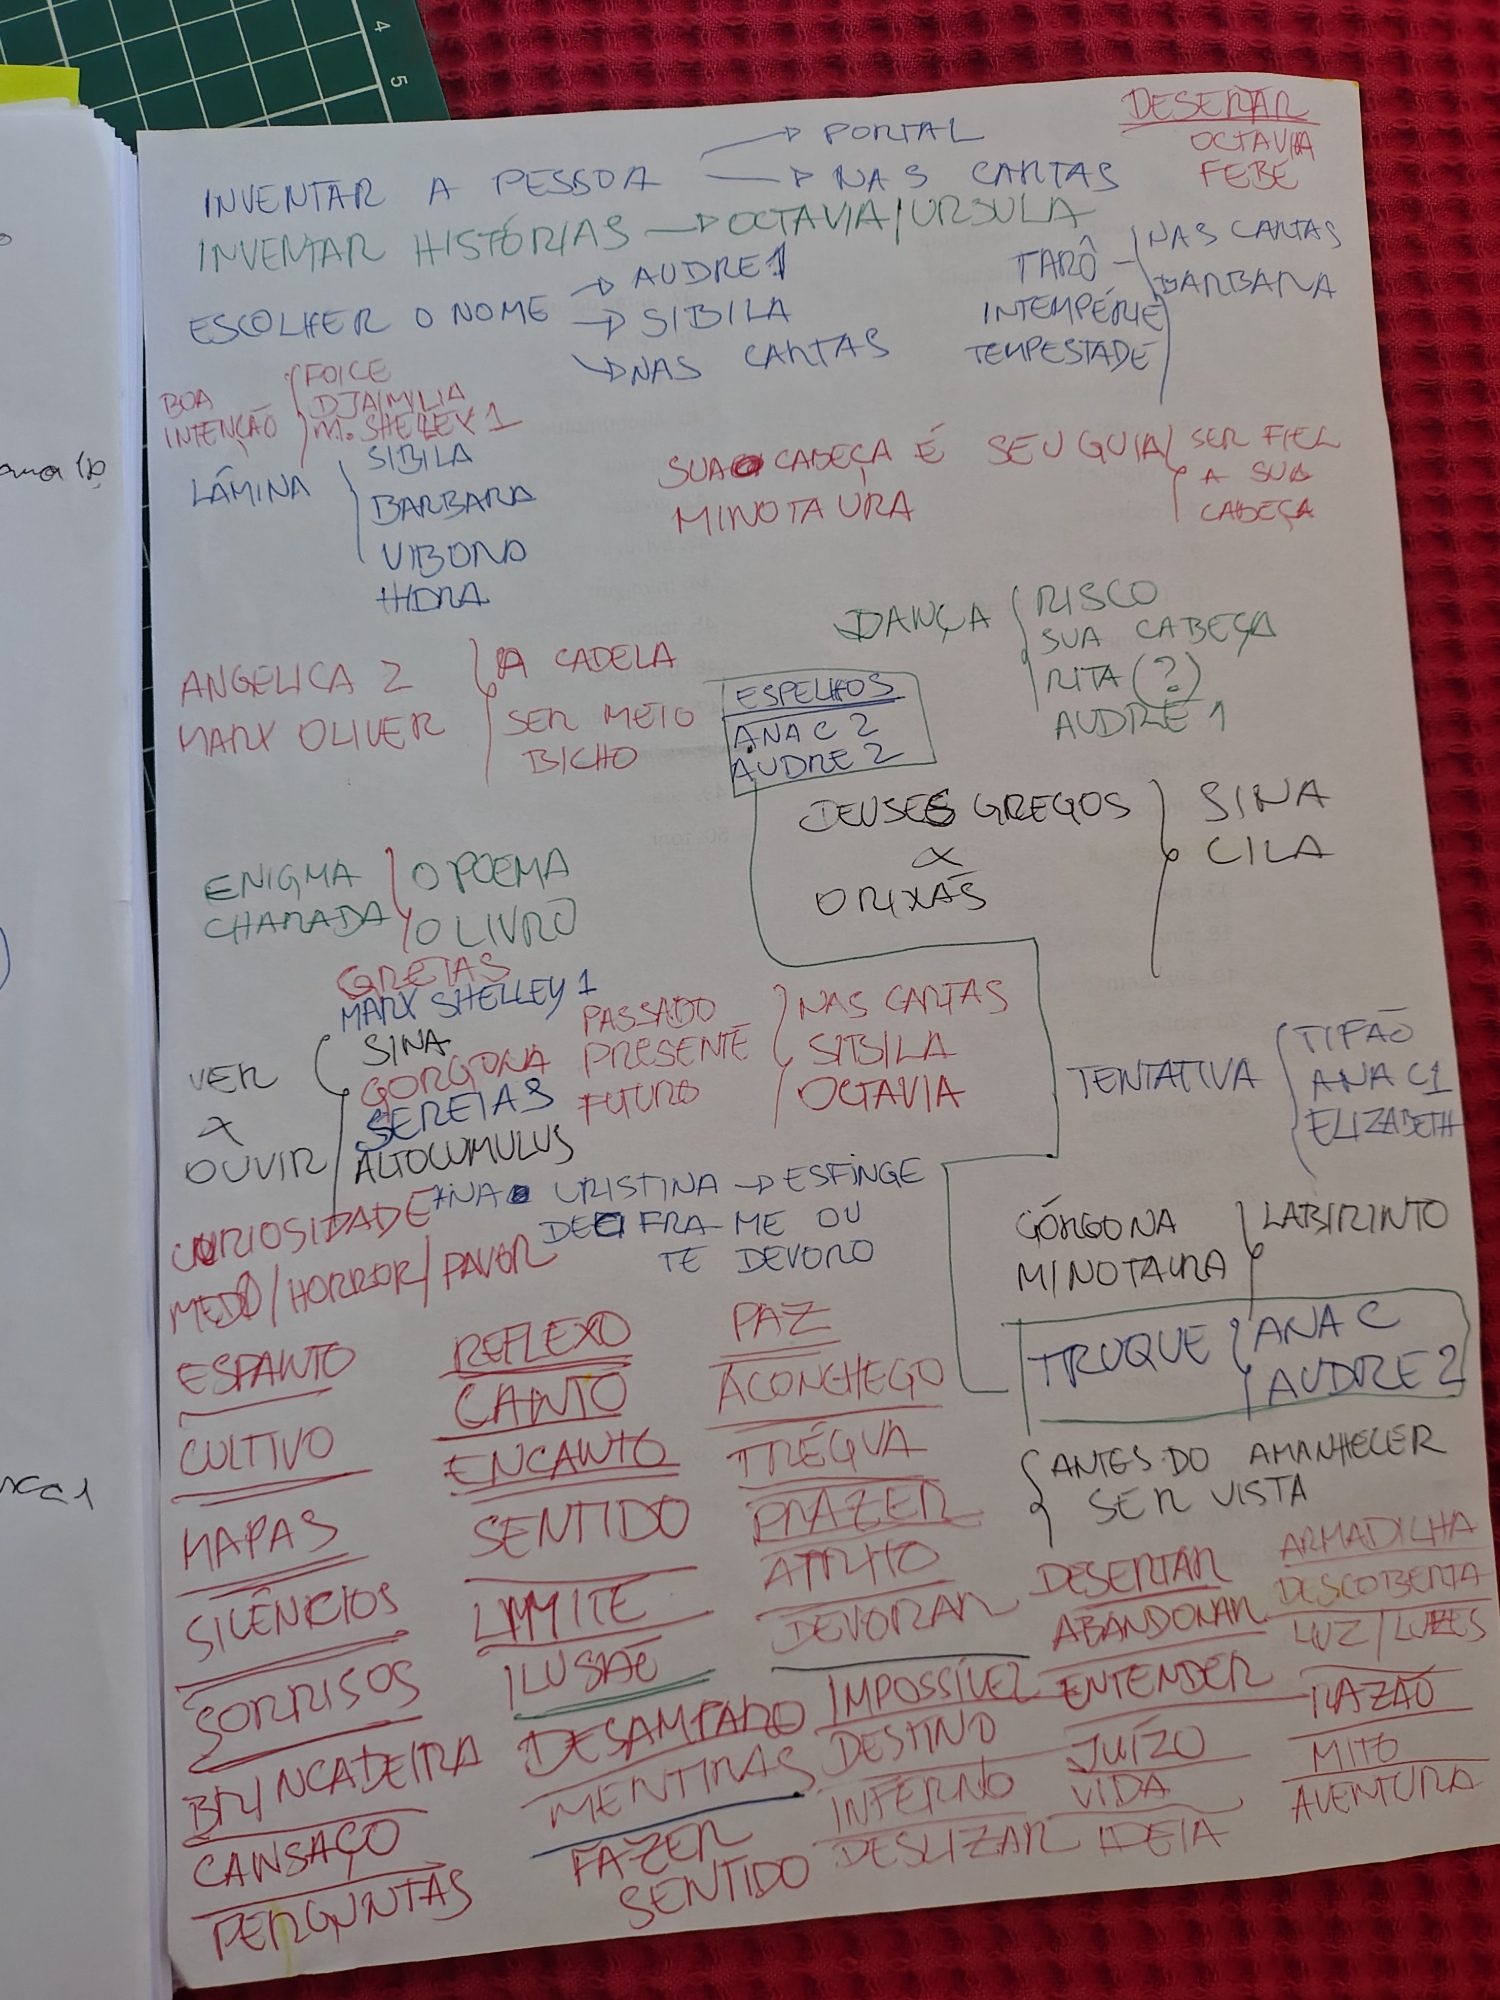 4
5
DESERTAR
OCTAVIA
FEBE
INVENTAR A PESSOA → PORTAL
→ NAS CARTAS
INVENTAR HISTÓRIAS → OCTAVIA/URSULA
ESCOLHER O NOME → AUDRE 1
→ SIBILA
→ NAS CARTAS
TARÔ
INTEMPÉRIE
TEMPESTADE
NAS CARTAS
BARBARA
BOA
INTENÇÃO
FOICE
DJAIMILIA
M. SHELLEY 1
LÂMINA
SIBILA
BARBARA
VIBORA
HIDRA
SUA CABEÇA É SEU GUIA
MINOTAURA
SER FIEL
A SUA
CABEÇA
DANÇA
RISCO
SUA CABEÇA
RITA (?)
AUDRE 1
ANGÉLICA 2
MARX OLIVER
A CADELA
SER MEIO
BICHO
ESPELHOS
ANA C 2
AUDRE 2
DEUSES GREGOS
X
ORIXÁS
SINA
CILA
ENIGMA
CHARADA
O POEMA
O LIVRO
VER
X
OUVIR
GREIAS
MARX SHELLEY 1
SINA
GORGONA
SEREIAS
ALTOCUMULUS
PASSADO
PRESENTE
FUTURO
NAS CARTAS
SIBILA
OCTAVIA
TENTATIVA
TIFÃO
ANA C1
ELIZABETH
ANA CRISTINA → ESFINGE
DECIFRA-ME OU
TE DEVORO
CURIOSIDADE
MEDO/HORROR/PAVOR
GÓRGONA
MINOTAURA
LABIRINTO
TRUQUE
ANA C
AUDRE 2
ANTES DO AMANHECER
SER VISTA
ESPANTO
CULTIVO
MAPAS
SILÊNCIOS
SORRISOS
BRINCADEIRA
CANSAÇO
PERGUNTAS
REFLEXO
CANTO
ENCANTO
SENTIDO
LIMITE
ILUSÃO
DESAMPARO
MENTIRAS
FAZER
SENTIDO
PAZ
ACONCHEGO
TRÉGUA
PRAZER
ATRITO
DEVORAR
IMPOSSÍVEL
DESTINO
INFERNO
DESLIZAR
DESERTAR
ABANDONAR
ENTENDER
JUÍZO
VIDA
IDEIA
ARMADILHA
DESCOBERTA
LUZ/LUZES
RAZÃO
MITO
AVENTURA